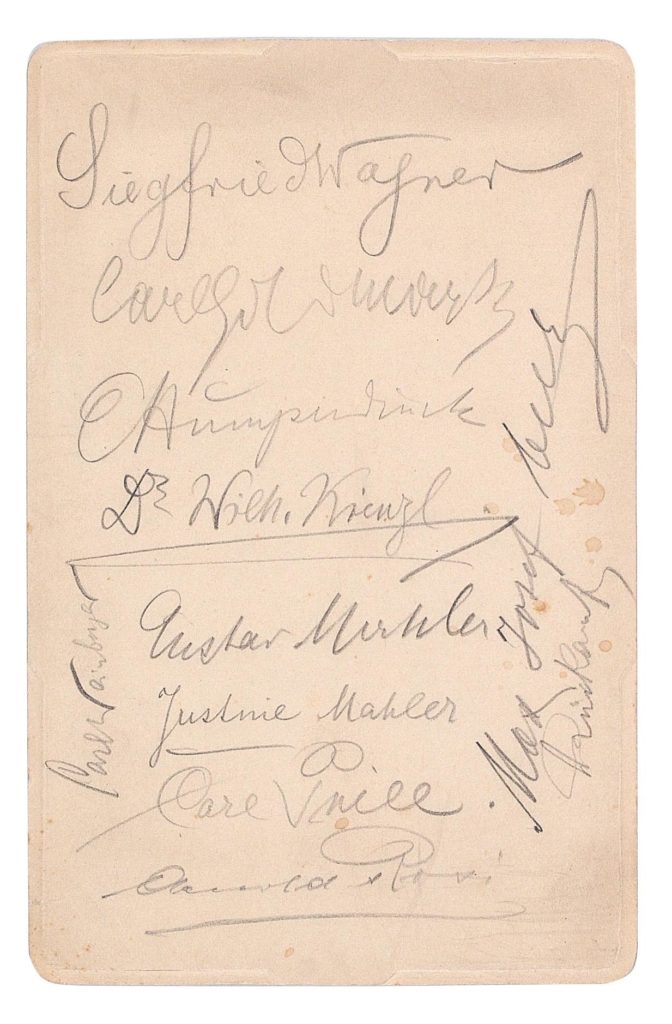 Siegfried Wagner
Carl Goldmark
E Humperdinck
Dr Wilh. Kienzl
Gustav Mahler
Justine Mahler
Carl Prill
Arnold Rosé
Max Josef Beer
Carl